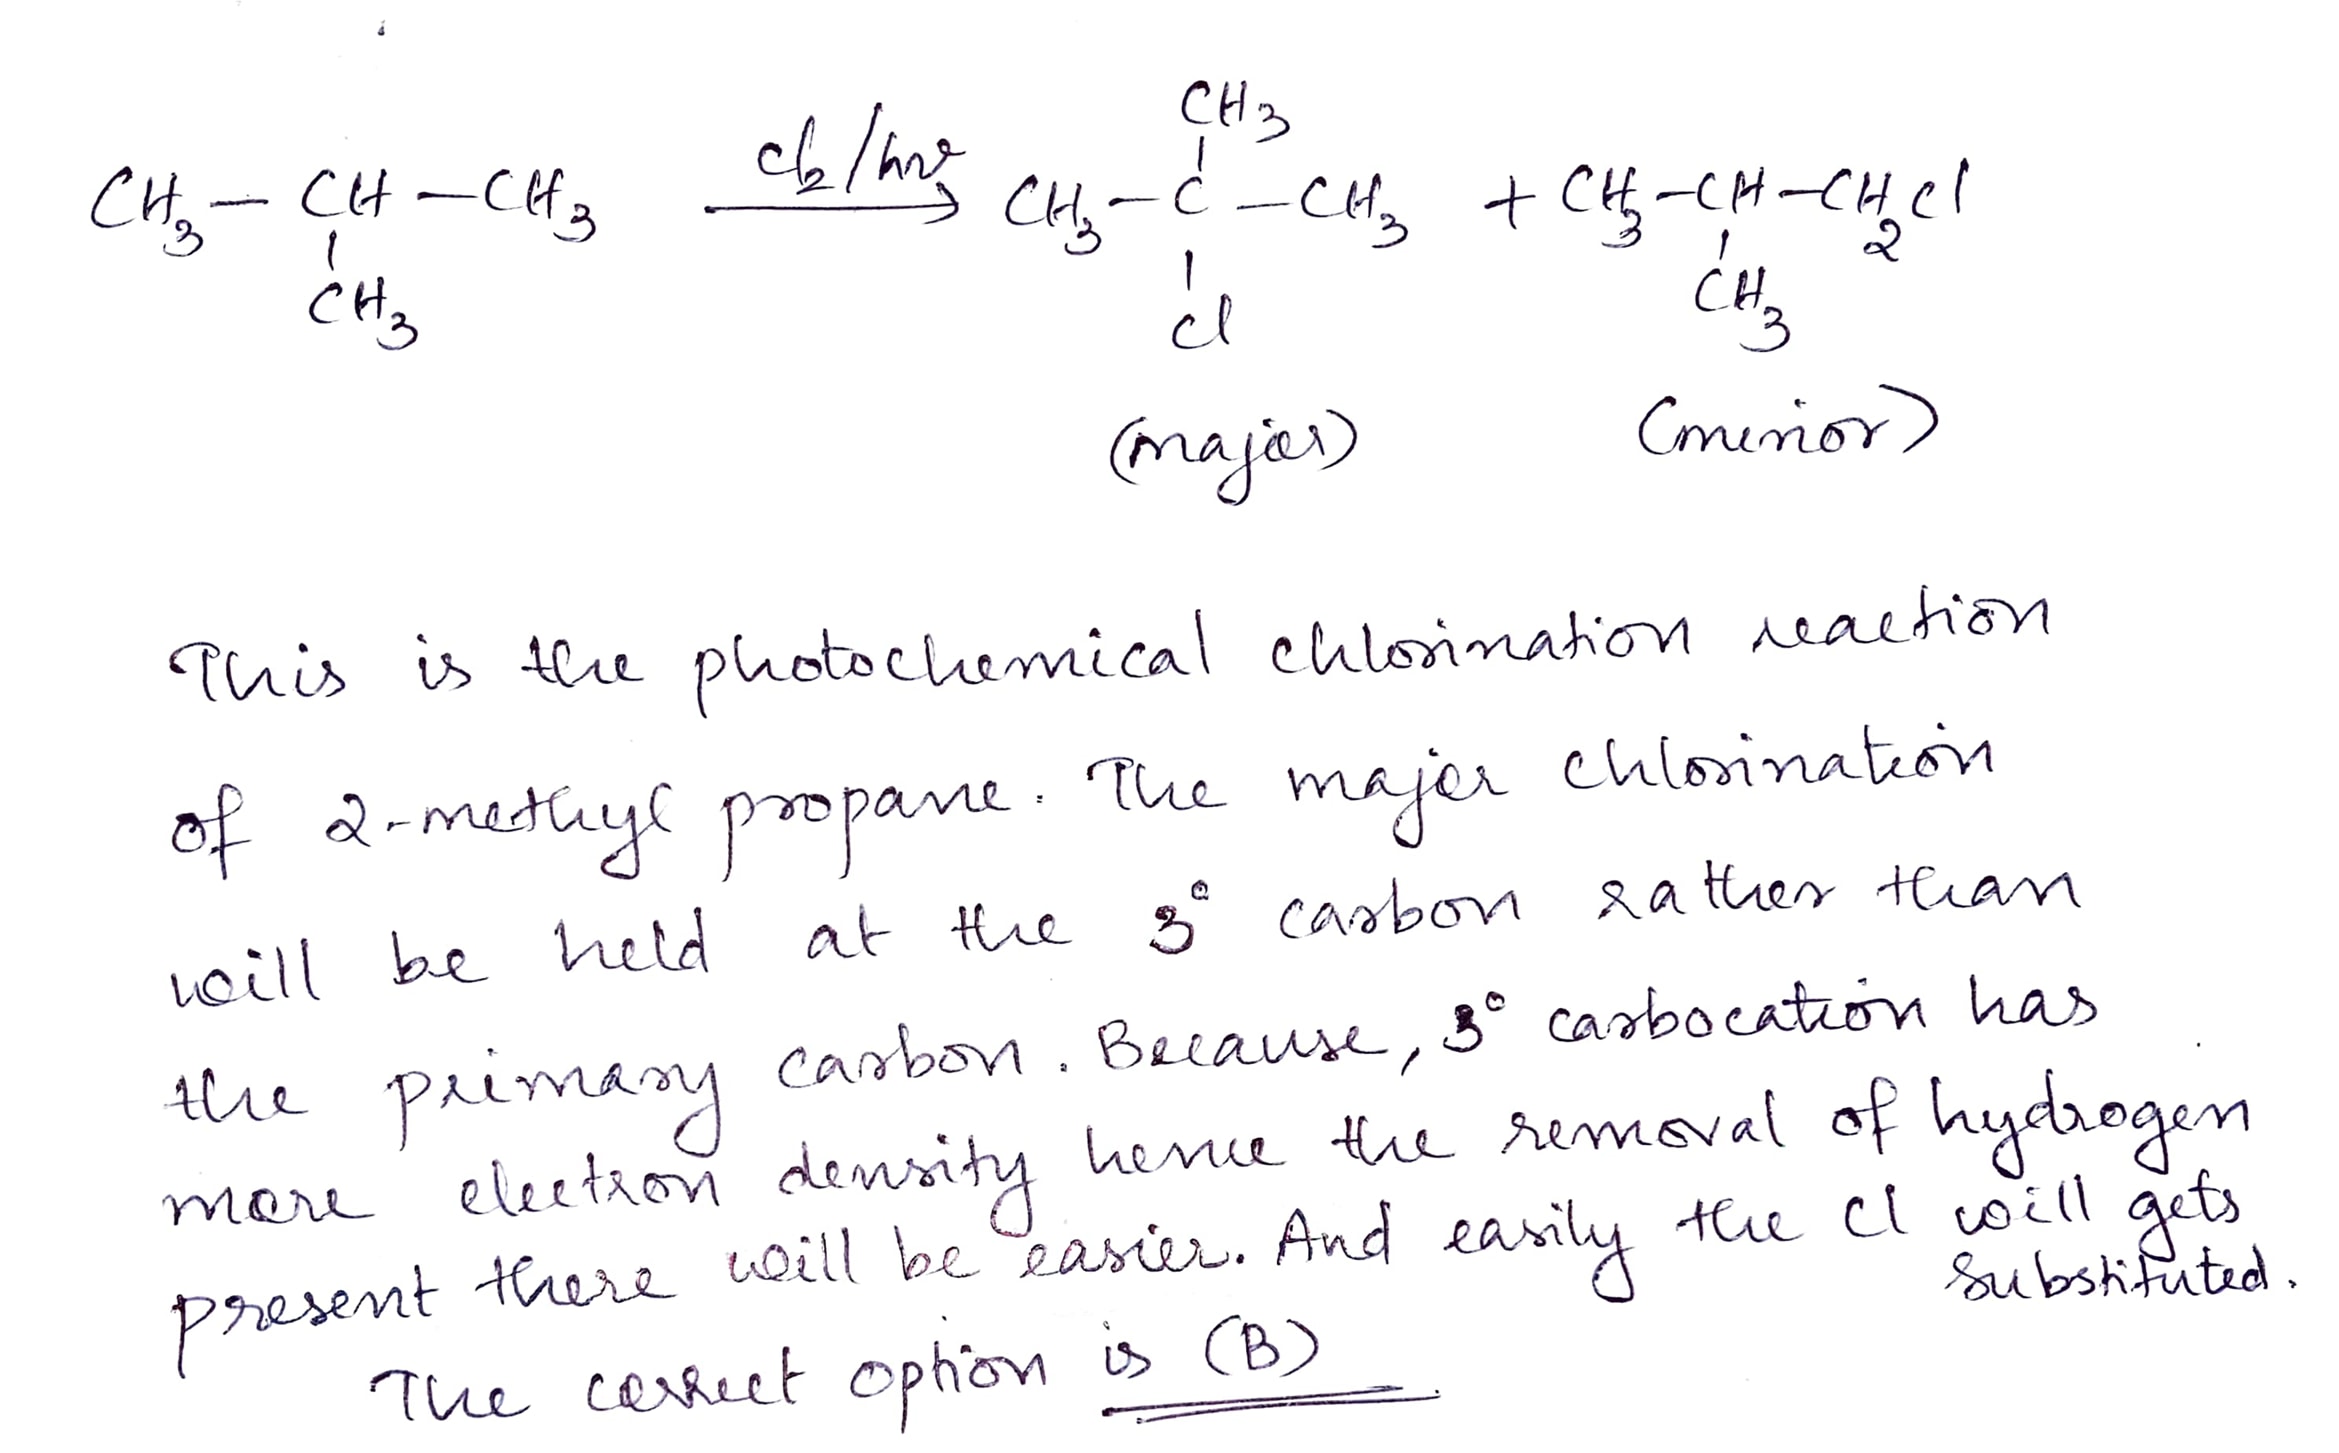 CH3
CH3 - CH - CH3 Cl2/hν CH3 - C - CH3 + CH3 - CH - CH2Cl
CH3 Cl CH3
(major) (minor)
This is the photochemical chlorination reaction
of 2-methyl propane. The major chlorination
will be held at the 3° carbon rather than
the primary carbon. Because, 3° carbocation has
more electron density hence the removal of hydrogen
present there will be easier. And easily the Cl will gets
substituted.
The correct option is (B)